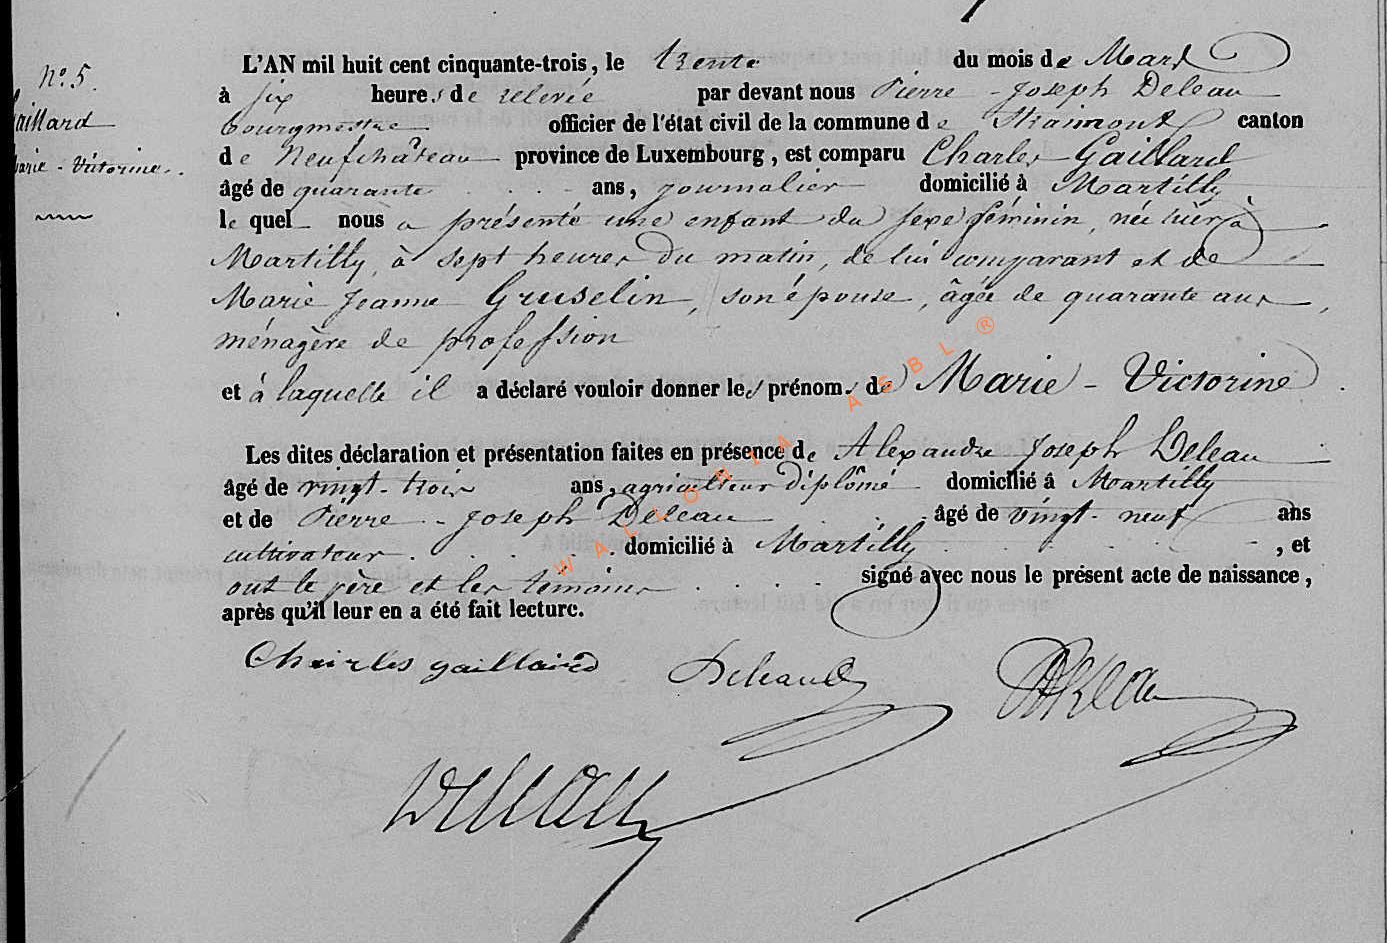 N.º 5.
Gaillard
Marie - Victorine.
L'AN mil huit cent cinquante-trois, le trente du mois de Mars
à six heures de relevée par devant nous Pierre - Joseph Deleau
bourgmestre officier de l'état civil de la commune de Straimont canton
de Neufchâteau province de Luxembourg, est comparu Charles Gaillard
âgé de quarante ans, journalier domicilié à Martilly
lequel nous a présenté une enfant du sexe féminin, née hier à
Martilly, à sept heures du matin, de lui comparant et de
Marie Jeanne Gruselin, son épouse, âgée de quarante ans,
ménagère de profession
et à laquelle il a déclaré vouloir donner les prénoms de Marie - Victorine.
Les dites déclaration et présentation faites en présence de Alexandre Joseph Deleau
âgé de vingt-trois ans, agriculteur diplômé domicilié à Martilly
et de Pierre - Joseph Deleau âgé de vingt-neuf ans
cultivateur domicilié à Martilly, et
ont le père et les témoins signé avec nous le présent acte de naissance,
après qu'il leur en a été fait lecture.
Charles gaillaird Deleau
Deleau
WALLONIA ASBL ®